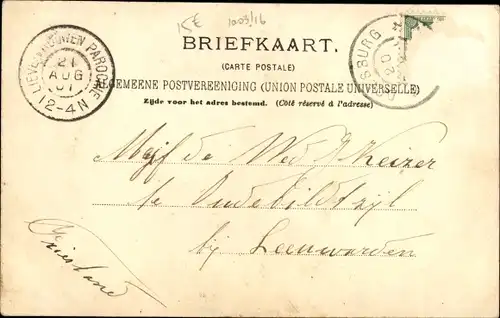 15€ 1003/16
BRIEFKAART.
(CARTE POSTALE)
ALGEMEENE POSTVEREENIGING (UNION POSTALE UNIVERSELLE)
Zijde voor het adres bestemd. (Côté réservé à l'adresse)
LIEVEVROUWEN PAROCHIE
21
AUG
01
12-4N
SBURG
20
de Wed J Keizer
te Oudebildtzijl
bij Leeuwarden
Friesland